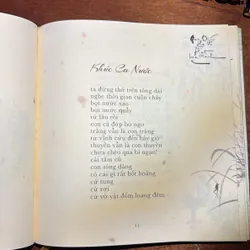 Khúc Ca Nước
ta đứng thở trên tông dài
nghe thời gian cuộn chảy
bọt nước sao
bọt nước quẫy
từ lâu rồi
con cá đớp bo ngơ
trăng vẫn là con trăng
từ vĩnh cửu đến bây giờ
thuyền vẫn là con thuyền
chưa chèo qua bỉ ngạn!
cái tăm cá
con sóng dâng
có cái gì rất hốt hoảng
cứ rung
cứ rơi
cứ vờ vật đốm loang đêm...
11